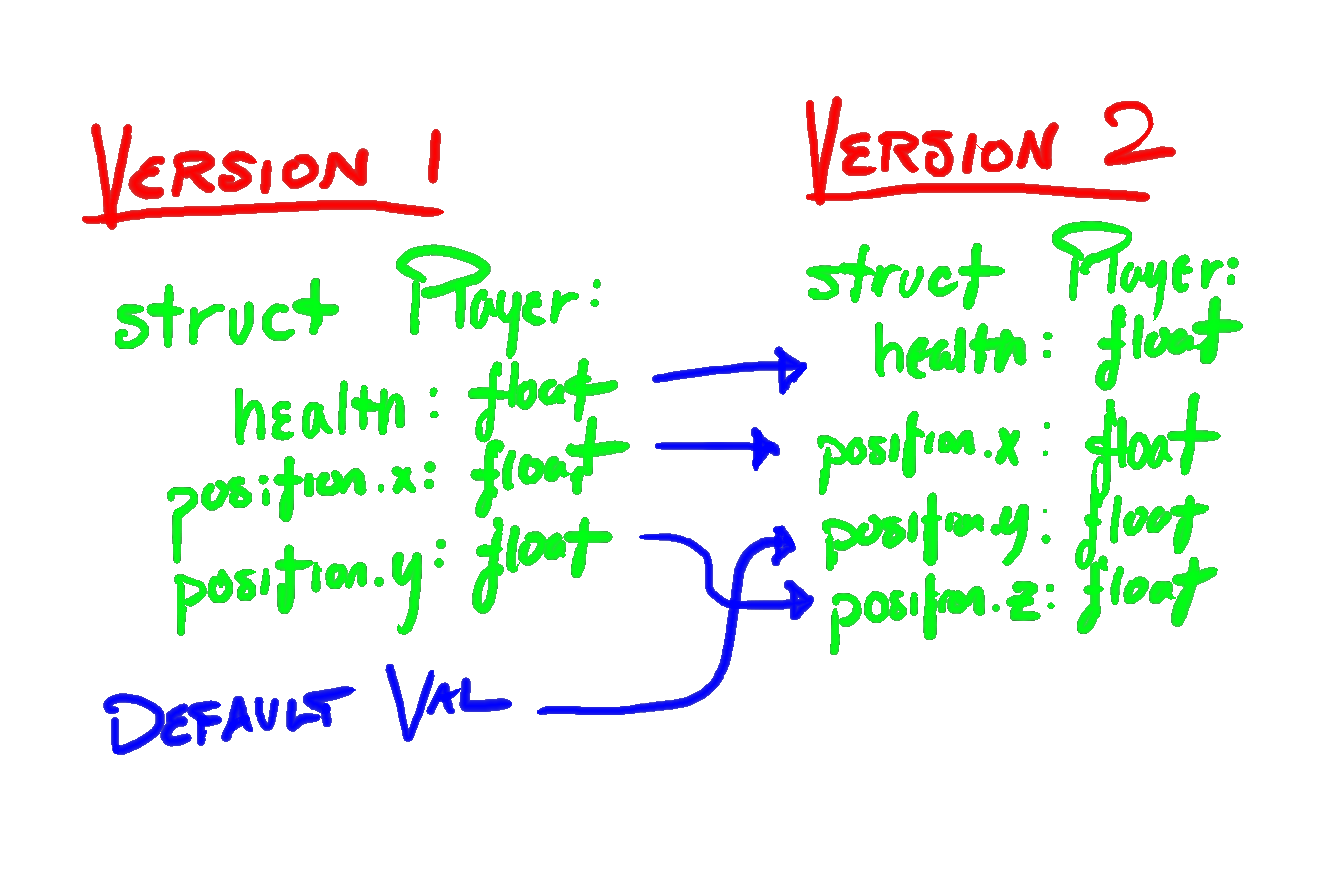 VERSION 1
struct Player:
health: float
position.x: float
position.y: float
DEFAULT VAL
VERSION 2
struct Player:
health: float
position.x: float
position.y: float
position.z: float